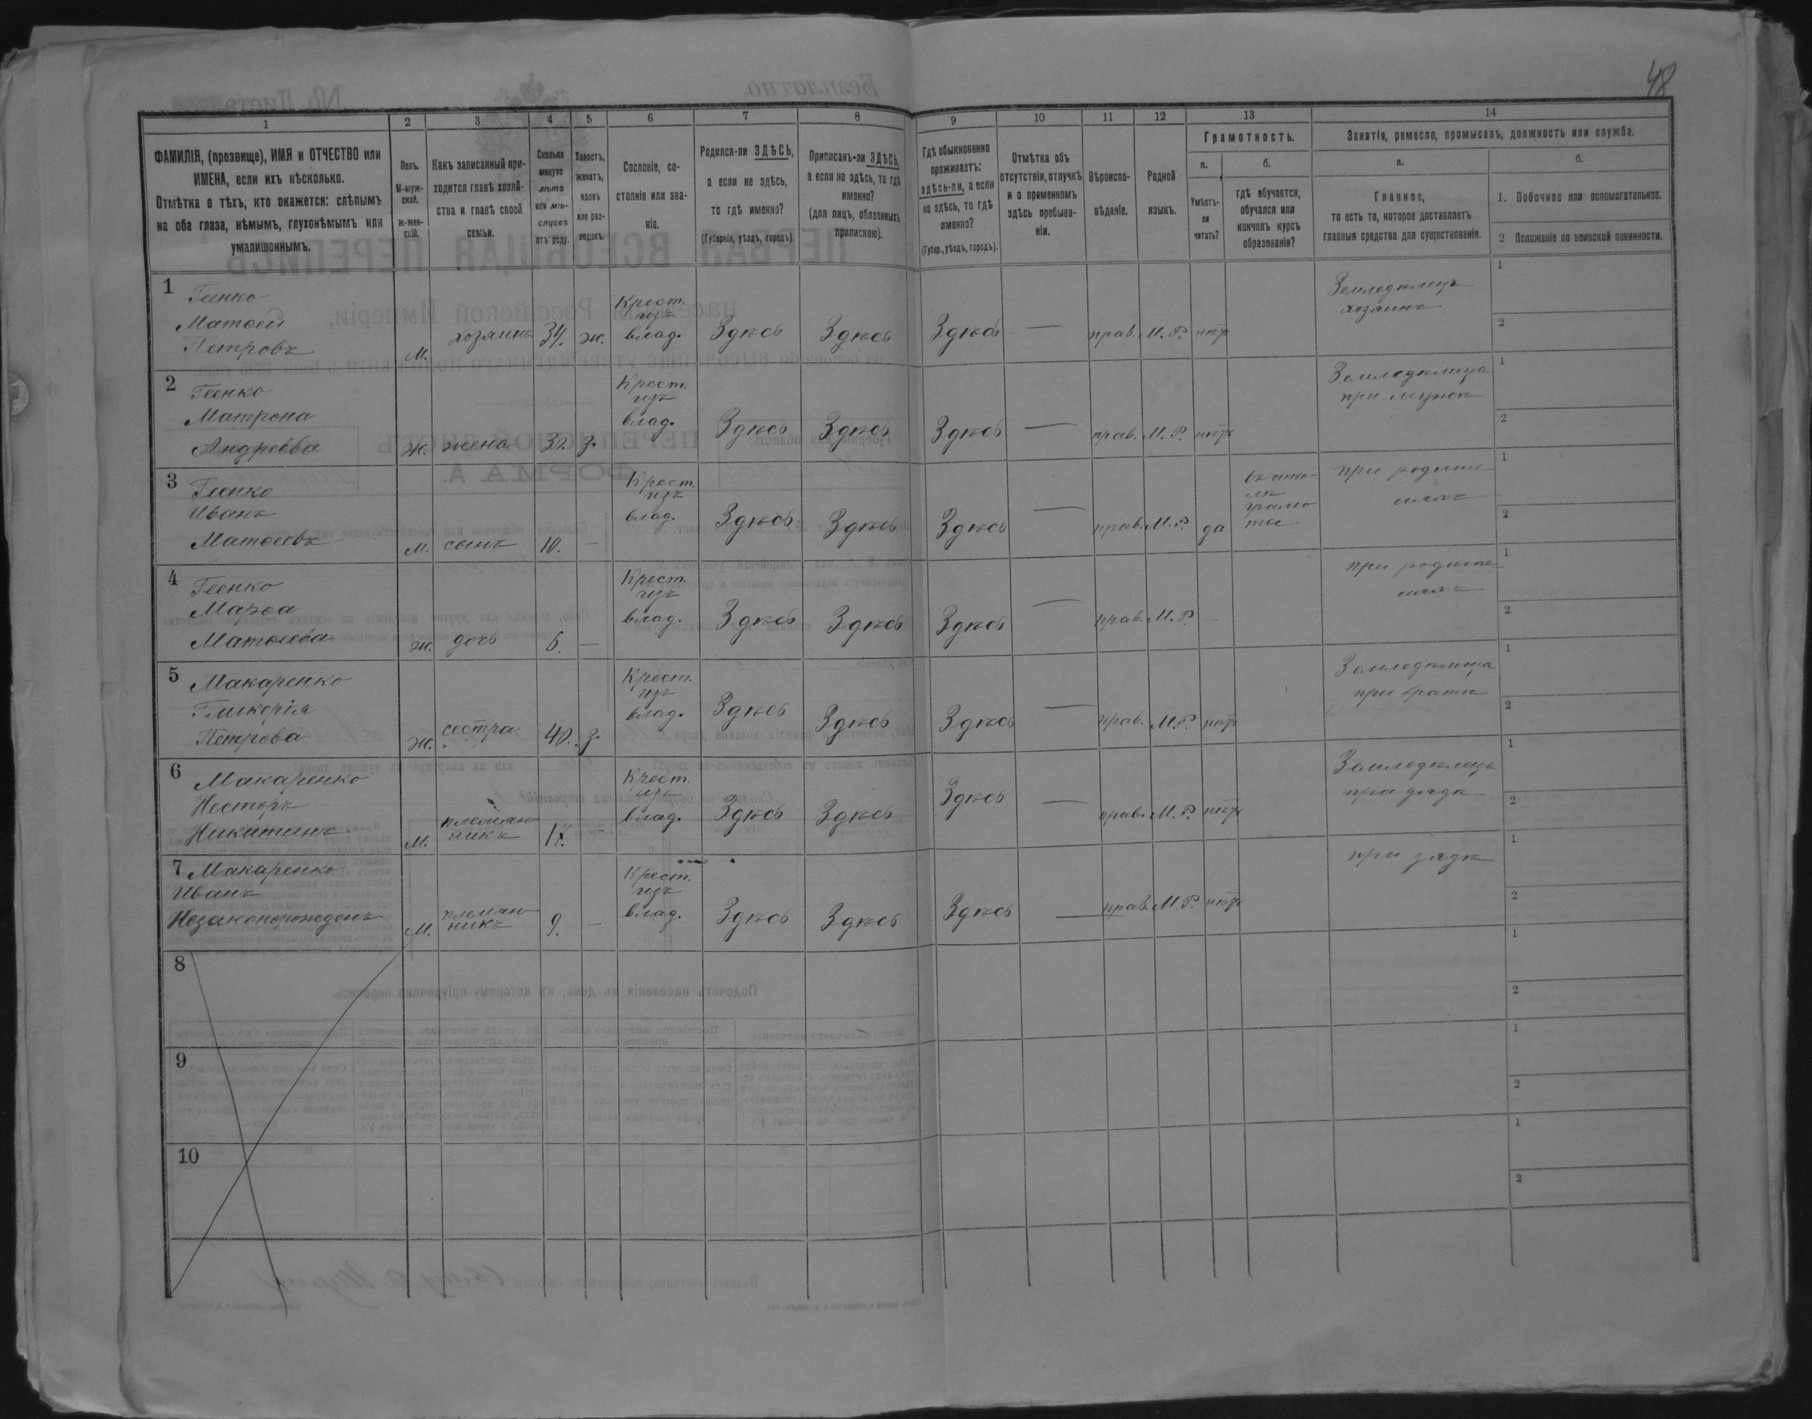 48
1
2
3
4
5
6
7
8
9
10
11
12
13
14
ФАМИЛІЯ, (прозвище), ИМЯ и ОТЧЕСТВО или
ИМЕНА, если ихъ нѣсколько.
Отмѣтка о тѣхъ, кто окажется: слѣпымъ
на оба глаза, нѣмымъ, глухонѣмымъ или
умалишоннымъ.
Полъ.
М-муж-
ской.
Ж-жен-
скій.
Какъ записанный при-
ходится главѣ хозяй-
ства и главѣ своей
семьи.
Сколько
минуло
лѣтъ
или мѣ-
сяцевъ
отъ роду.
Холостъ,
женатъ,
вдовъ
или раз-
веденъ.
Сословіе, со-
стояніе или зва-
ніе.
Родился-ли ЗДѢСЬ,
а если не здѣсь,
то гдѣ именно?
(Губернія, уѣздъ, городъ).
Приписанъ-ли ЗДѢСЬ,
а если не здѣсь, то гдѣ
именно?
(для лицъ, обязанныхъ
припискою).
Гдѣ обыкновенно
проживаетъ:
здѣсь-ли, а если
не здѣсь, то гдѣ
именно?
(Губер., уѣздъ, городъ).
Отмѣтка объ
отсутствіи, отлучкѣ
и о временномъ
здѣсь пребыва-
ніи.
Вѣроиспо-
вѣданіе.
Родной
языкъ.
Грамотность.
а.
б.
Умѣетъ-
ли
читать?
гдѣ обучается,
обучался или
кончилъ курсъ
образованія?
Занятіе, ремесло, промыселъ, должность или служба.
а.
б.
Главное,
то есть то, которое доставляетъ
главныя средства для существованія.
1. Побочное или вспомогательное.
2 Положеніе по воинской повинности.
1
Геенко
Матвей
Петровъ
М.
хозяинъ
34.
ж.
Крест.
изъ
влад.
Здѣсь
Здѣсь
Здѣсь
—
прав.
М. Р.
нѣтъ
Земледѣлецъ
хозяинъ
1
2
2
Геенко
Матрона
Андреева
Ж.
жена
З.
Крест.
изъ
влад.
Здѣсь
Здѣсь
Здѣсь
—
прав.
М. Р.
нѣтъ
Земледѣлица
при мужѣ
1
2
3
Геенко
Иванъ
Матвеевъ
М.
сынъ
10.
—
Крест.
изъ
влад.
Здѣсь
Здѣсь
Здѣсь
—
прав.
М. Р.
да
при родите-
ляхъ
1
2
4
Геенко
Марѳа
Матвеева
Ж.
дочь
6.
—
Крест.
изъ
влад.
Здѣсь
Здѣсь
Здѣсь
—
прав.
М. Р.
—
при родите-
ляхъ
1
2
5
Макаренко
Гликерія
Петрова
Ж.
сестра
40.
З.
Крест.
изъ
влад.
Здѣсь
Здѣсь
Здѣсь
—
прав.
М. Р.
нѣтъ
Земледѣлица
при братѣ
1
2
6
Макаренко
Несторъ
Никитинъ
М.
племян-
никъ
—
Крест.
изъ
влад.
Здѣсь
Здѣсь
Здѣсь
—
прав.
М. Р.
нѣтъ
Земледѣлецъ
при дядѣ
1
2
7
Макаренко
Иванъ
Незаконорожденъ
М.
племян-
никъ
9.
—
Крест.
изъ
влад.
Здѣсь
Здѣсь
Здѣсь
—
прав.
М. Р.
нѣтъ
при дядѣ
1
2
8
1
2
9
1
2
10
1
2